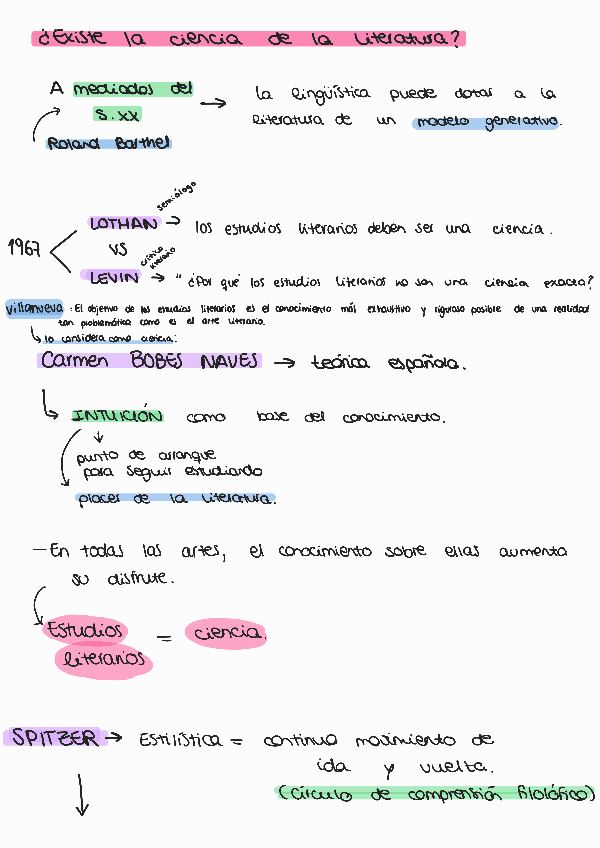 ¿Existe la ciencia de la literatura?
A mediados del
s.xx → la lingüística puede dotar a la
literatura de un modelo generativo.
Roland Barthel
semiólogo
LOTHAN → los estudios literarios deben ser una ciencia.
1967
VS
crítico literario
LEVIN → "¿Por qué los estudios literarios no son una ciencia exacta?
Villanueva: El objetivo de los estudios literarios es el conocimiento más exhaustivo y riguroso posible de una realidad
tan problemática como es el arte literario.
lo considera como ciencia:
Carmen BOBES NAVES → teórica española.
INTUICIÓN como base del conocimiento.
punto de arranque
para seguir estudiando
placer de la literatura.
— En todas las artes, el conocimiento sobre ellas aumenta
su disfrute.
Estudios
literarios = ciencia.
SPITZER → Estilística = continuo movimiento de
ida y vuelta.
(círculo de comprensión filológico)